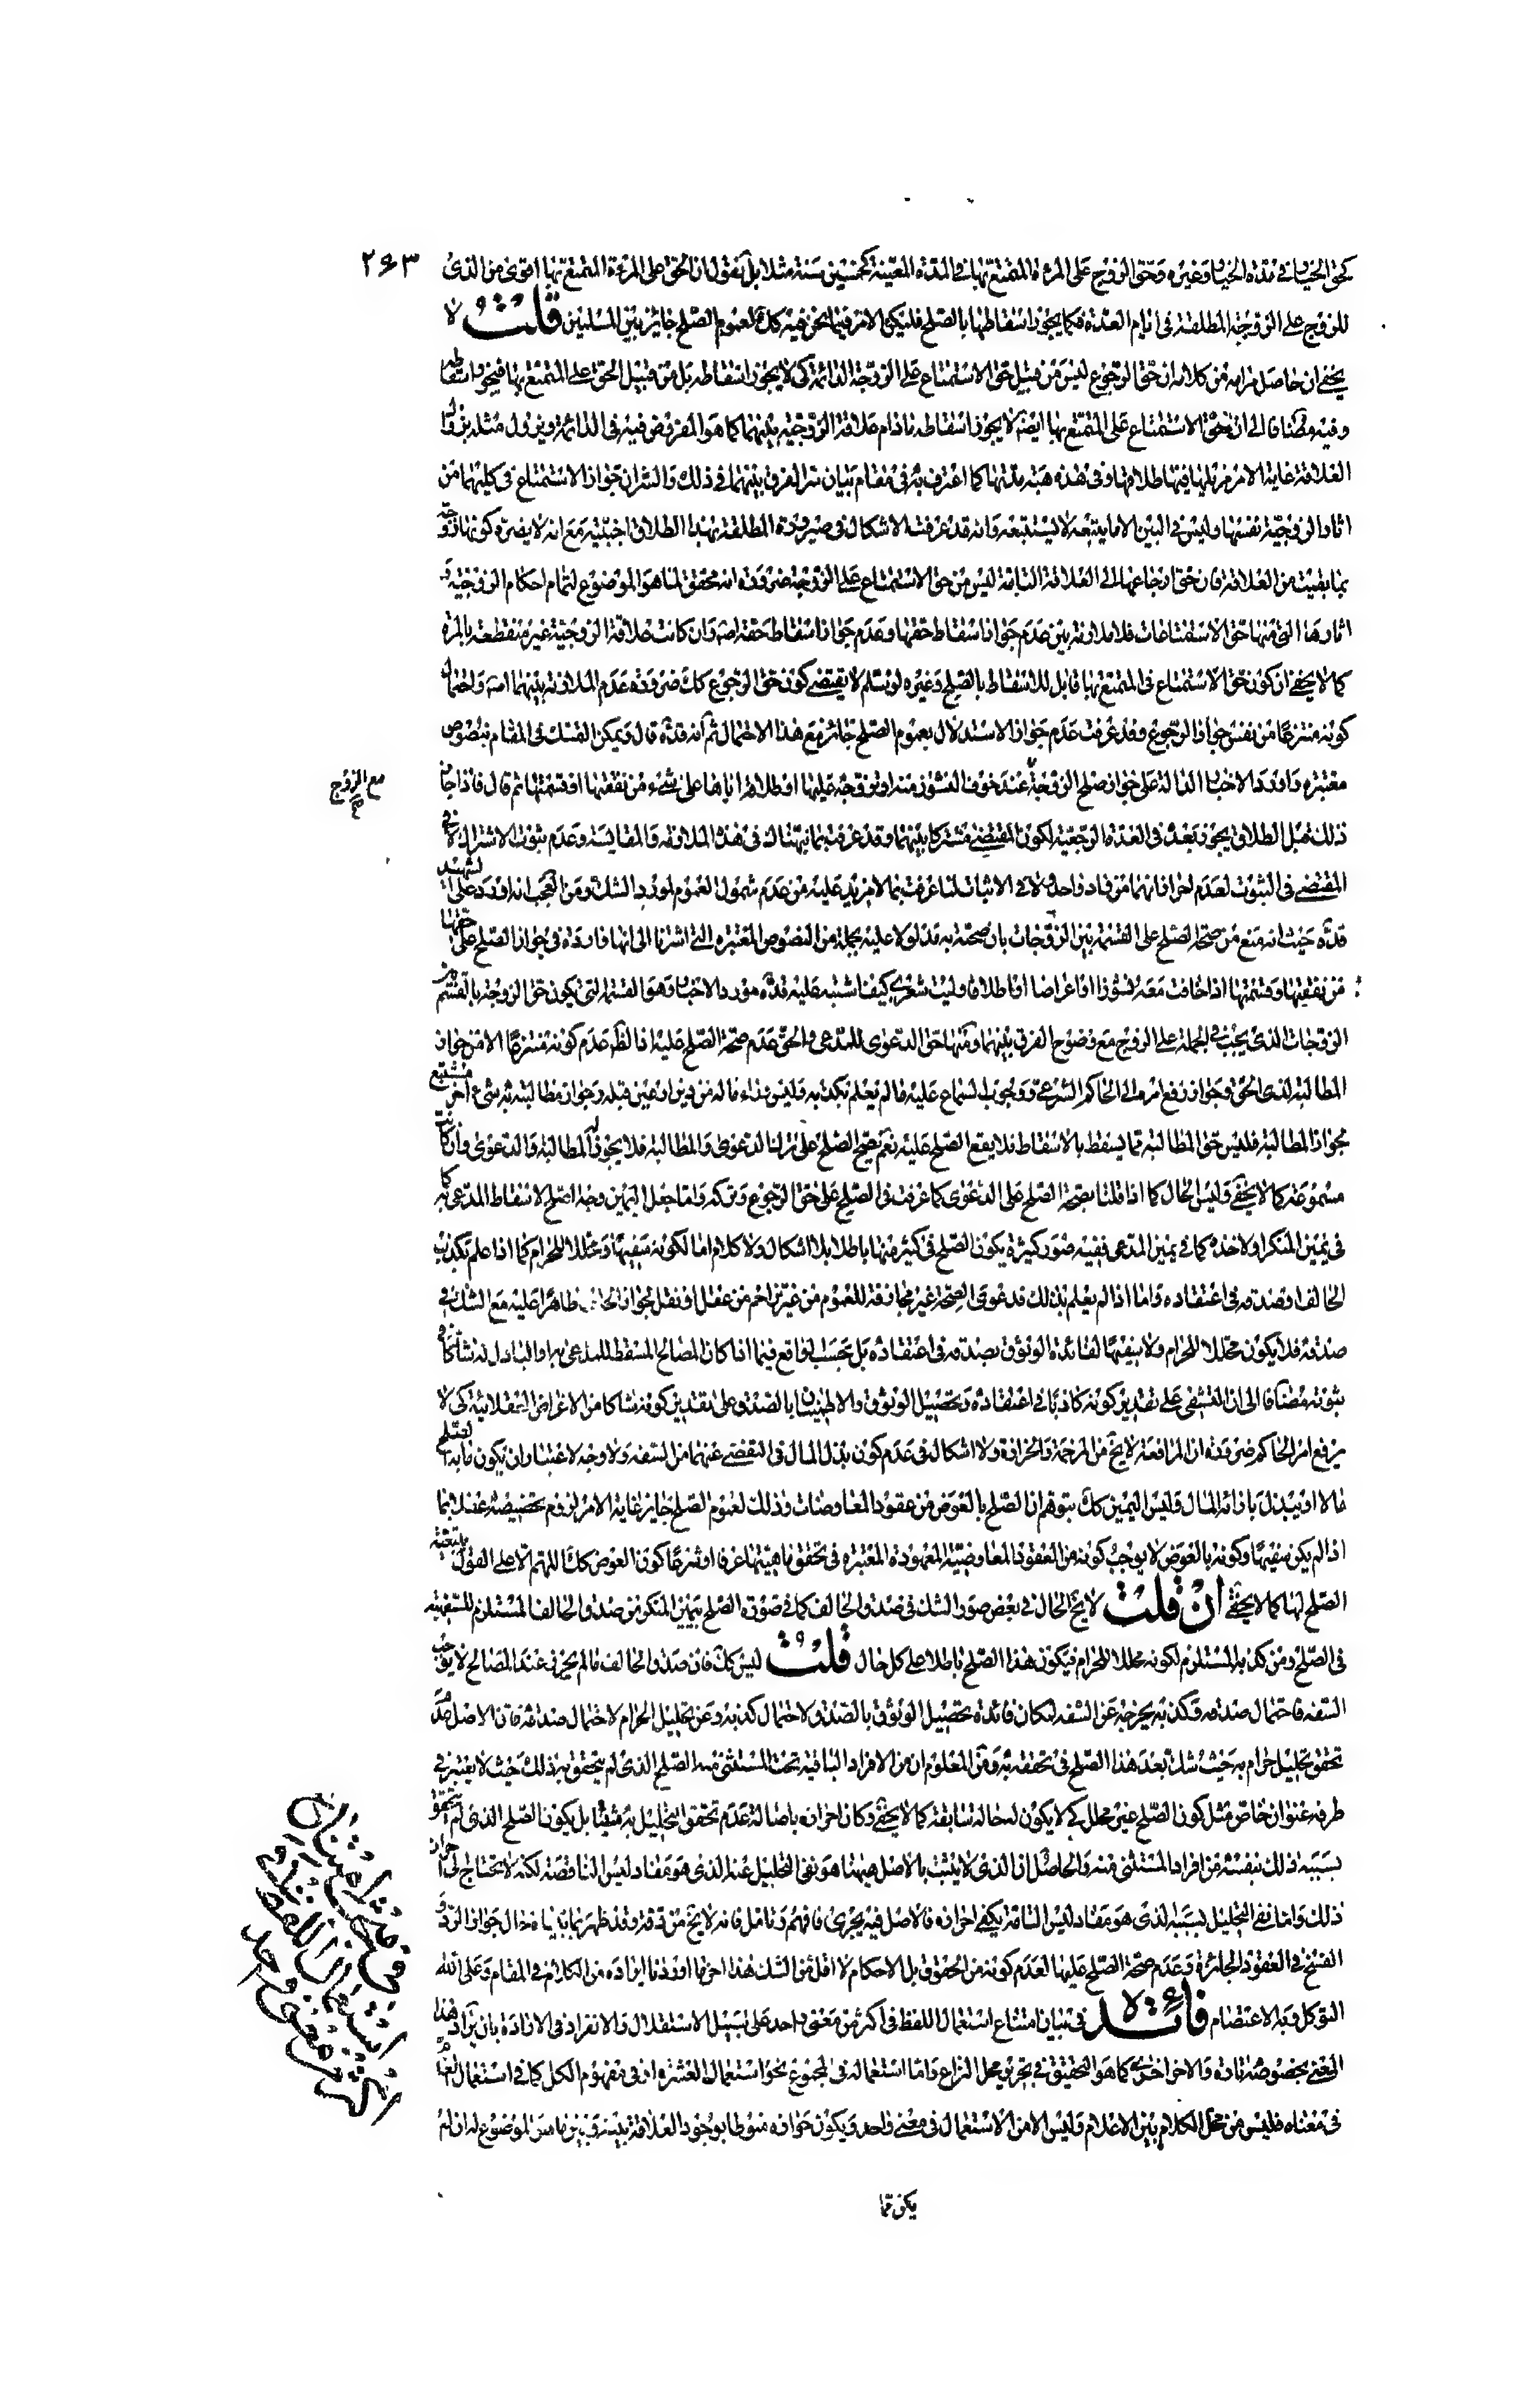 ٢٤٣
كحق الخيار في مدة الخيار وغيره وحق الزوج على المرءة المتمتع بها في المدة المعينة كخمسين سنة مثلا بل نقول ان الحق على المرءة المتمتع بها اقوى من الذى
للزوج على الزوجة المطلقة فى ايام العدة فكما يجوز اسقاطها بالصلح فليكن الامر فيما نحن فيه كك لعموم الصلح جايز بين المسلمين قلت لا
يخفى ان حاصل مرامه من كلامه ان حق الرجوع ليس من قبيل حق الاستمتاع على الزوجة الدائمة كى لا يجوز اسقاطه بل من قبيل الحق على المتمتع بها فيجوز اسقاطه
وفيه مضافا الى ان حق الاستمتاع على المتمتع بها ايضا لا يجوز اسقاطه ما دام علاقة الزوجية بينهما كما هو المفروض فيه فى الدائمة ويزول مثله بزوال
العلاقة غاية الامر مزيلها فيها طلاقها وفى هذه هبة مدتها كما اعترف به فى مقام بيان سر الفرق بينهما فى ذلك والسر ان جواز الاستمتاع فى كليهما من
اثار الزوجية نفسها وليس فى البين الا ما يتبعه لا يستتبعه وانه قد عرفت الاشكال فى صيرورة المطلقة بهذا الطلاق اجنبية مع انه لا يضره كونها زوجة
بما بقيت من العلاقة فان حق ارجاعها الى العلاقة التامة ليس من حق الاستمتاع على الزوجة ضرورة انه محقق لما هو الموضوع لتمام احكام الزوجية و
اثارها التى منها حق الاستمتاعات فلا ملازمة بين عدم جواز اسقاط حقها وعدم جواز اسقاط حقه اصلا وان كانت علاقة الزوجية غير منقطعة بالمرة
كما لا يخفى ان كون حق الاستمتاع فى المتمتع بها قابل للاسقاط بالصلح وغيره لو سلم لا يقتضى كون حق الرجوع كك ضرورة عدم الملازمة بينهما اصلا واحتمال
كونه منتزعا من نفس جواز الرجوع وقد عرفت عدم جواز الاستدلال بعموم الصلح جائز مع هذا الاحتمال ثم انه قده قال ويمكن التمسك فى المقام بنصوص
معتبرة واورد الاخبار الدالة على جواز صلح الزوجة عند خوف النشوز منه او تزوجه عليها او طلاقه اياها على شىء من نفقتها او قسمتها ثم قال فاذا جاز
مع الزوج
صح
ذلك قبل الطلاق يجوز بعده فى العدة الرجعية لكون المقتضى مشتركا بينهما وقد عرفت بما بيناك فى هذه الملازمة والمقايسة وعدم ثبوت الاشتراك لا فى
المقتضى فى الثبوت لعدم احراز انهما من واد واحد ولا فى الاثبات لما عرفت بما لا مزيد عليه من عدم شمول العموم لمورد الشك ومن العجب انه اورد على الشهيد
قده حيث انه منع من صحة الصلح على القسمة بين الزوجات بان صحته به مدلولا عليه بجملة من النصوص المعتبرة التى اشرنا الى انها واردة فى جواز الصلح على حقها
من نفقتها وقسمتها اذا خافت معه نشوزا او اعراضا او طلاقا وليت شعرى كيف اشتبه عليه قده مورد الاخبار وهو القسمة التى يكون حق الزوجة بالقسم بين
الزوجات الذى يجب فى الجملة على الزوج مع وضوح الفرق بينهما ومنها حق الدعوى للمدعى والحق عدم صحة الصلح عليه اذ الظ عدم كونه منتزعا الا من جواز
المطالبة لذى الحق وجواز رفع امره الى الحاكم الشرعى ووجوب السماع عليه ما لم يعلم بكذبه وليس وراء ماله من دين او عين قبله وجواز مطالبته به شىء اخر مستتبع
لجواز المطالبة فليس حق المطالبة مما يسقط بالاسقاط فلا يقع الصلح عليه نعم يصح الصلح على ترك الدعوى والمطالبة فلا يجوز له المطالبة والدعوى وان كانت
مسموعة كما لا يخفى وليس الحال كما اذا قلنا بصحة الصلح على الدعوى كما عرفت فى الصلح على حق الرجوع وتركه واما جعل اليمين وجه الصلح لاسقاط المدعى به كما
فى يمين المنكر او لاخذه كما فى يمين المدعى ففيه صور كثيرة يكون الصلح فى كثير منها باطلا بلا اشكال ولا كلام اما لكونه سفيها او محللا للحرام كما اذا علم بكذب
الحالف او صدقه فى اعتقاده واما اذا لم يعلم بذلك فدعوى الصحة غير مجازفة للعموم من غير مزاحم من عقل او نقل لجواز ظاهرا عليه مع الشك فى
صدقه فلا يكون محللا للحرام ولا سفيها لفائدة الوثوق بصدقه فى اعتقاده بل بحسب الواقع فيما اذا كان المصالح المسقط للمدعى به او الباذل له شاكا فى
ثبوته مضافا الى ان التشفى على تقدير كونه كاذبا فى اعتقاده وتحصيل الوثوق والاطمينان بالصدق على تقدير كونه شاكا من الاغراض العقلائية كى لا
يرفع امر الحاكم ضرورة ان المرافعة لا يخ من الزحمة والحزازة ولا اشكال فى عدم كون بذل المال فى التفصى عنهما من السفه ولا وجه لاعتبار ان يكون ما به الصلح
مالا او يبذل بازائه المال وليس اليمين كك بتوهم ان الصلح بالعوض من عقود المعاوضات وذلك لعموم الصلح جايز غاية الامر لزوم تخصيصه عقلا بما
اذا لم يكن سفيها وكونه بالعوض لا يوجب كونه من العقود المعاوضية المعهودة المعتبرة فى تحقق ماهيتها عرفا او شرعا كون العوض كك اللهم الا على القول بتبعية
الصلح لها كما لا يخفى ان قلت لا يخ الحال فى بعض صور الشك فى صدق الحالف كما فى صورة الصلح بيمين المنكر من صدق الحالف المستلزم للسفهية
فى الصلح ومن كذبه المستلزم لكونه محللا للحرام فيكون هذا الصلح باطلا على كل حال قلت ليس كك فان صدق الحالف ما لم يحرز عند المصالح لا يوجب
السفه فاحتمال صدقه وكذبه يخرجه عن السفه لمكان فائدة تحصيل الوثوق بالصدق ولاحتمال كذبه وعن تحليل الحرام لاحتمال صدقه فان الاصل عدم
تحقق تحليل حرام به حيث شك بعد هذا الصلح فى تحققه به ومن المعلوم ان من الافراد الباقية تحت المستثنى منه الصلح الذى لم يتحقق به ذلك حيث لا يعتبر فى
طرفه عنوان خاص مثل كون الصلح غير محلل كى لا يكون له حالة سابقة كما لا يخفى وكان احرازه باصالة عدم تحقق التحليل به مثبتا بل يكون الصلح الذى لم يتحقق
بسببه ذلك بنفسه من افراد المستثنى منه والحاصل ان الذى لا يثبت بالاصل هيهنا هو نفى التحليل عنه الذى هو مفاد ليس الناقصة لكنه لا يحتاج الى احراز
ذلك واما نفى التحليل بسببه الذى هو مفاد ليس التامة يكفى احرازه فالاصل فيه يجرى فافهم وتامل فانه لا يخ من دقة وقد ظهر بما بيناه حال جواز الرد و
الفسخ فى العقود الجائزة وعدم صحة الصلح عليها لعدم كونه من الحقوق بل الاحكام لا اقل من الشك هذا اخر ما اوردنا ايراده من الكلام فى المقام وعلى الله
التوكل وبه الاعتصام فائدة فى بيان امتناع استعمال اللفظ فى اكثر من معنى واحد على سبيل الاستقلال والانفراد فى الارادة بان يراد هذا
المعنى بخصوصه تارة والاخر اخرى كما هو التحقيق فى تحرير محل النزاع واما استعماله فى المجموع نحو استعمال العشرة او فى مفهوم الكل كما فى استعمال لفظ
فى معناه فليس من محل الكلام بين الاعلام وليس الا من الاستعمال فى معنى واحد ويكون جوازه منوطا بوجود العلاقة بينه وبين ما من الموضوع له ان لم
يكن مما
فى
استعمال اللفظ فى
اكثر من معنى واحد